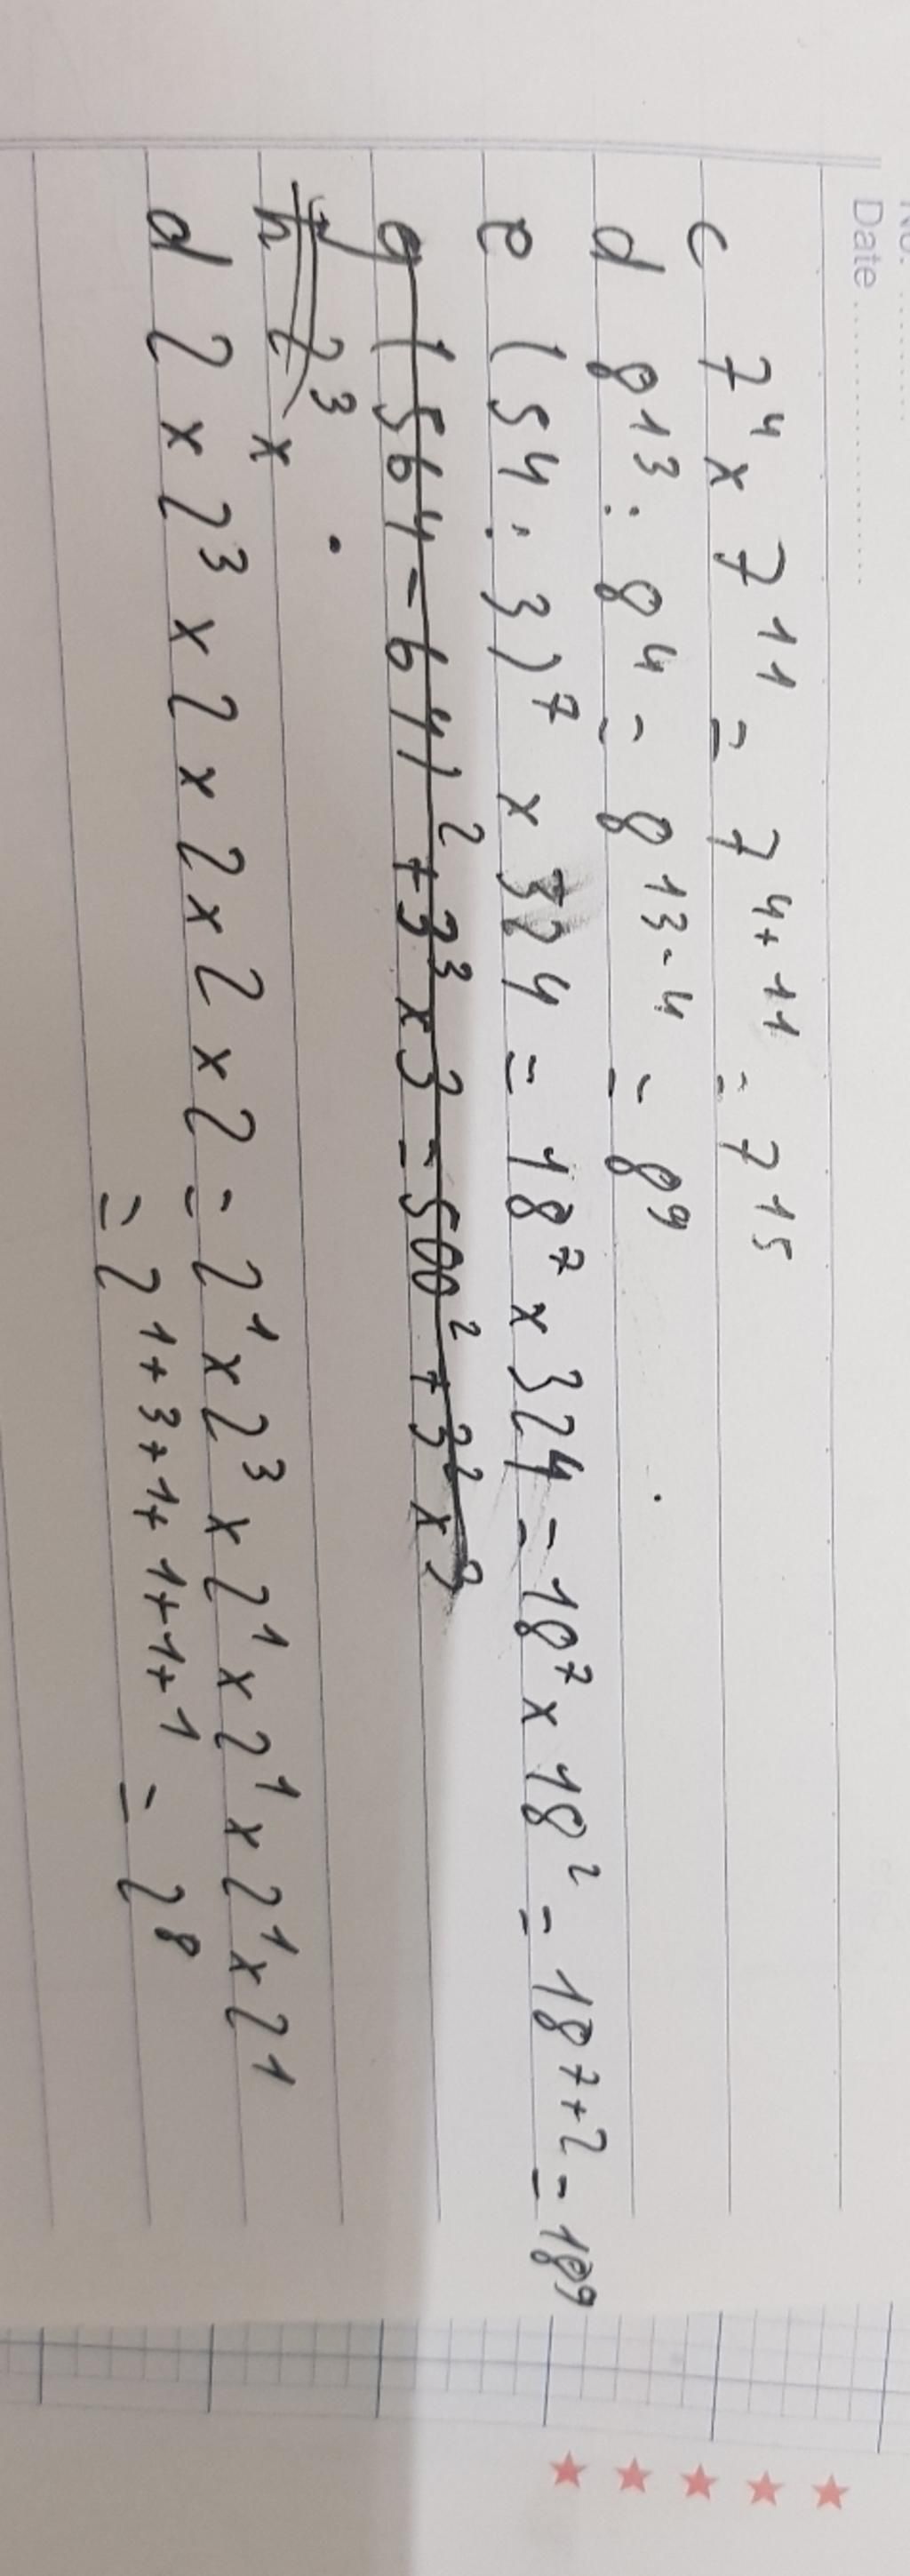 No. ............
Date ........................
c 7⁴ x 7¹¹ = 7⁴⁺¹¹ = 7¹⁵
d 8¹³ : 8⁴ = 8¹³⁻⁴ = 8⁹
e (54 : 3)⁷ x 324 = 18⁷ x 324 = 18⁷ x 18² = 18⁷⁺² = 18⁹
g (564 - 64)² + 3³ x 3 = 500² + 3² x 3
h 2³ x
d 2 x 2³ x 2 x 2 x 2 x 2 = 2¹ x 2³ x 2¹ x 2¹ x 2¹ x 2¹
= 2¹⁺³⁺¹⁺¹⁺¹⁺¹ = 2⁸